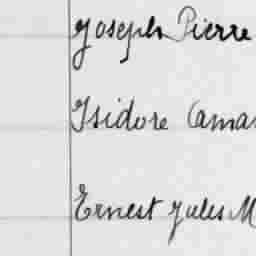 Joseph Pierre
Isidore Camar
Ernest Jules M